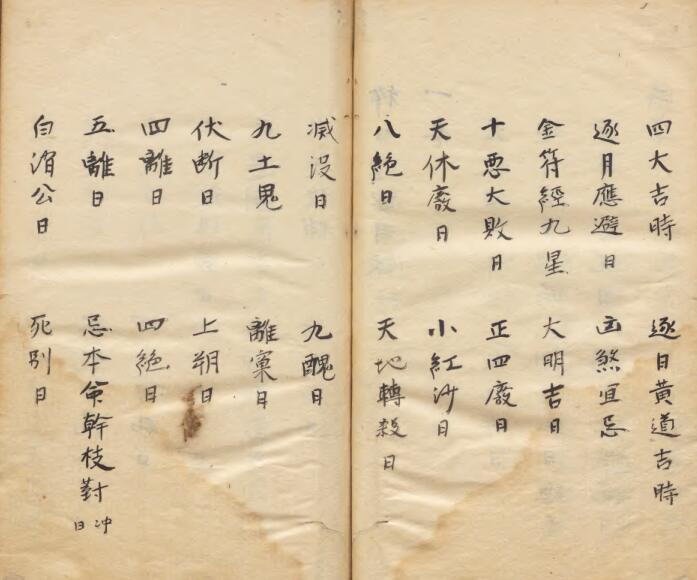 四大吉時 逐日黃道吉時
逐月應避日 凶煞宜忌
金符經九星 大明吉日
十悪大敗日 正四廢日
天休廢日 小紅沙日
八絕日 天地轉殺日
減没日 九醜日
九土鬼 離窠日
伏断日 上朔日
四離日 四絕日
五離日 忌本命幹枝對冲日
公日 死別日